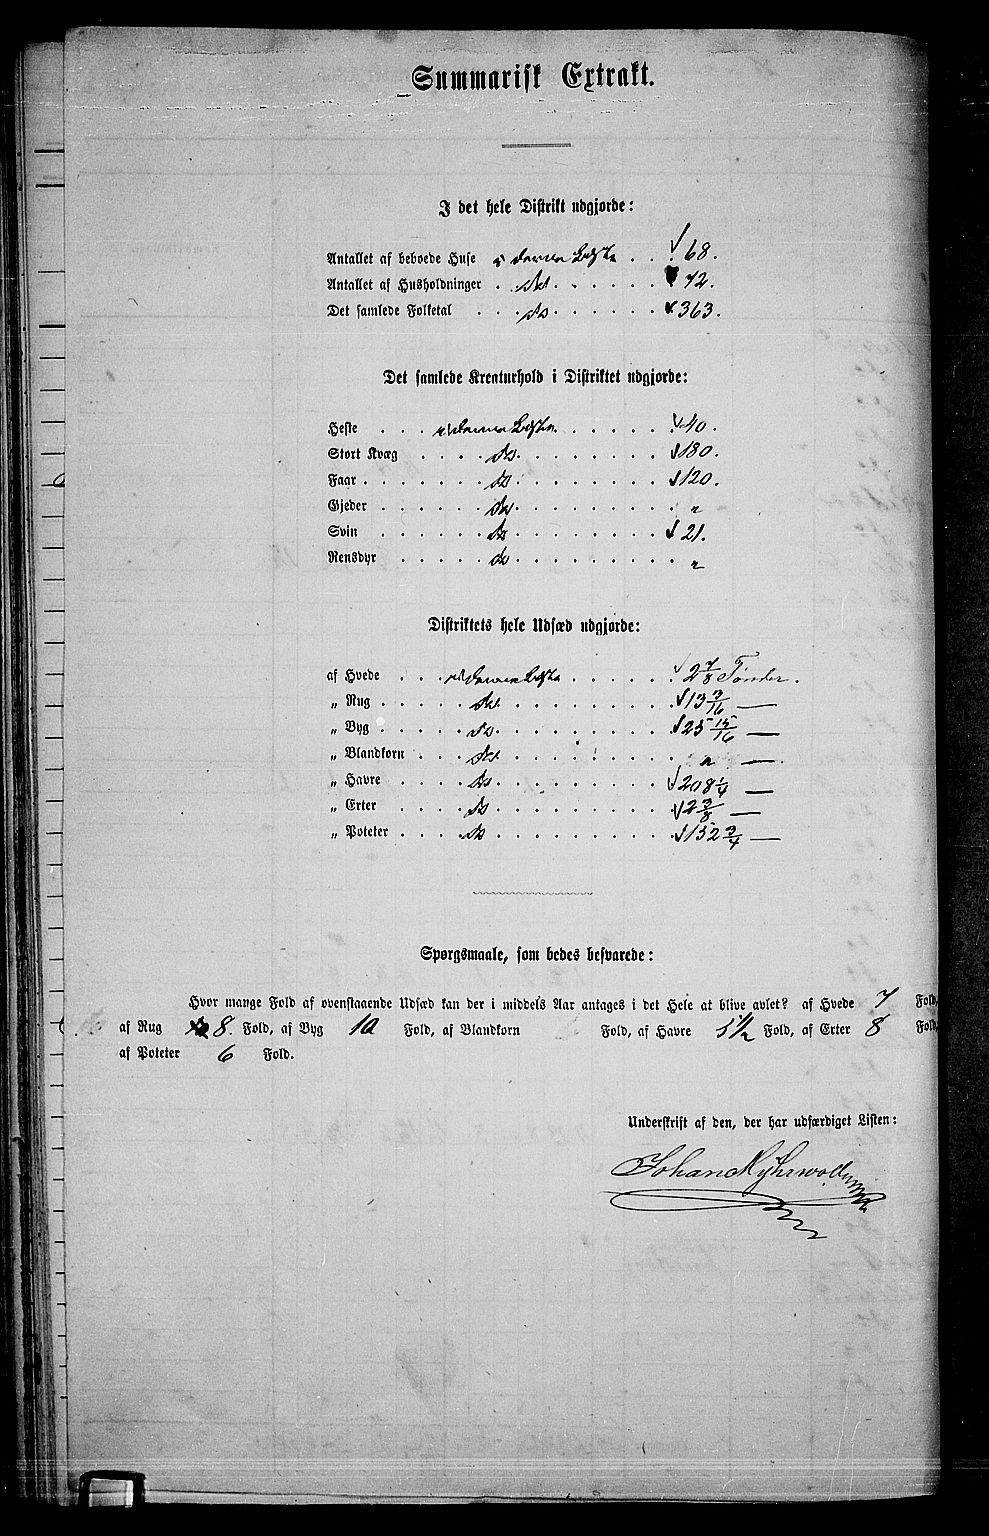 Summarisk Extrakt.
I det hele Distrikt udgjorde:
Antallet af beboede Huse i denne Liste . . 68.
Antallet af Husholdninger . do . . . . . . 72.
Det samlede Folketal . . . do . . . . . . 363.
Det samlede Kreaturhold i Distriktet udgjorde:
Heste . . . i denne Liste . . . . . . 40.
Stort Kvæg . . . . do . . . . . . . 180.
Faar . . . . . . do . . . . . . . 120.
Gjeder . . . . . do . . . . . . . "
Svin . . . . . do . . . . . . . 21.
Rensdyr . . . . do . . . . . . . "
Distriktets hele Udsæd udgjorde:
af Hvede . . . i denne Liste . . . . . 2 7/8 Tønder.
„ Rug . . . . do . . . . . . . 13 3/16 —
„ Byg . . . . do . . . . . . . 25 15/16 —
„ Blandkorn . . . do . . . . . . . " —
„ Havre . . . do . . . . . . . 208 1/4 —
„ Erter . . . do . . . . . . . 2 3/8 —
„ Poteter . . . do . . . . . . . 152 3/4 —
Spørgsmaale, som bedes besvarede:
Hvor mange Fold af ovenstaaende Udsæd kan der i middels Aar antages i det Hele at blive avlet? af Hvede 7 Fold,
af Rug 8. Fold, af Byg 10 Fold, af Blandkorn Fold, af Havre 5 1/2 Fold, af Erter 8 Fold,
af Poteter 6 Fold.
Underskrift af den, der har udfærdiget Listen:
Johan